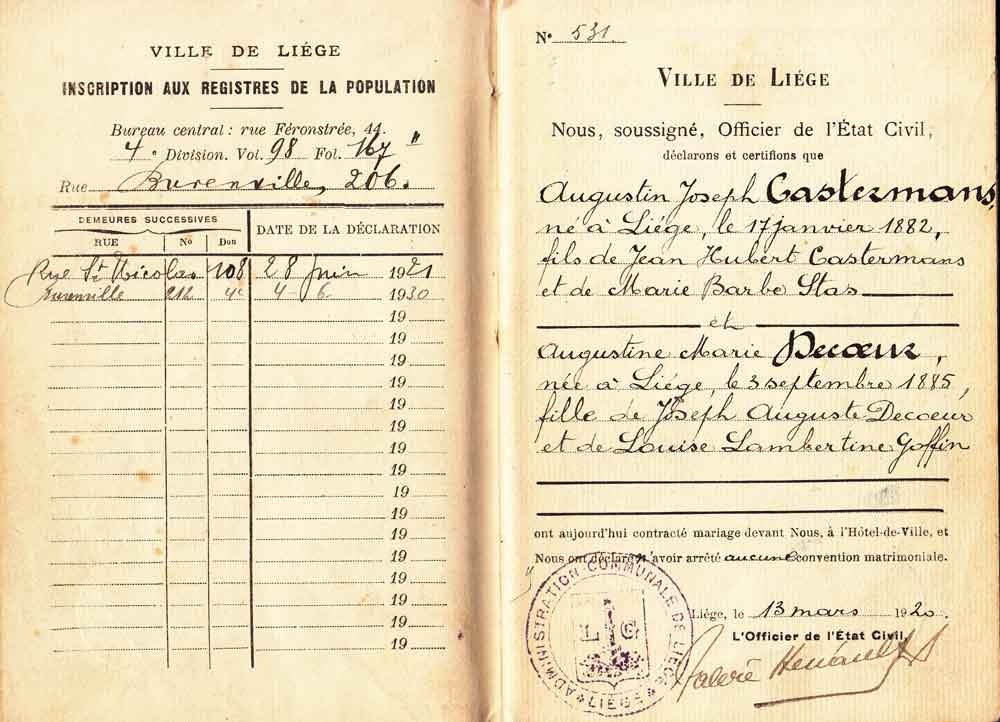 VILLE DE LIÉGE
INSCRIPTION AUX REGISTRES DE LA POPULATION
Bureau central : rue Féronstrée, 44.
4e Division. Vol. 98 Fol. 167 "
Rue Burenville, 206.
DEMEURES SUCCESSIVES
RUE No Don DATE DE LA DÉCLARATION
Rue St Nicolas 108 28 Juin 1921
Burenville 212 4e 4 - 6 1930
19
19
19
19
19
19
19
19
19
19
19
19
19
19
19
19
No 531
VILLE DE LIÉGE
Nous, soussigné, Officier de l'État Civil,
déclarons et certifions que
Augustin Joseph Castermans,
né à Liége, le 17 janvier 1882,
fils de Jean Hubert Castermans
et de Marie Barbe Stas
et
Augustine Marie Decoeur,
née à Liége, le 3 septembre 1885,
fille de Joseph Auguste Decoeur
et de Louise Lambertine Goffin
ont aujourd'hui contracté mariage devant Nous, à l'Hôtel-de-Ville, et
Nous ont déclaré n'avoir arrêté aucune convention matrimoniale.
Liége, le 13 mars 1920.
L'Officier de l'État Civil,
Valère Hénault
ADMINISTRATION COMMUNALE DE LIÉGE
L G
LIÉGE